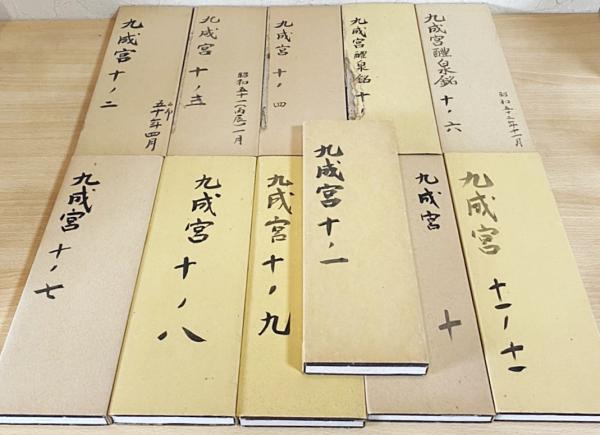 九成宮 十ノ二
五十一年四月
九成宮 十ノ三
昭和五十一(丙辰)一月
九成宮 十ノ四
九成宮醴泉銘 十ノ
九成宮醴泉銘 十ノ六
昭和五十二年十一月
九成宮 十ノ七
九成宮 十ノ八
九成宮 十ノ九
九成宮 十ノ一
九成宮 十
九成宮 十一ノ十一